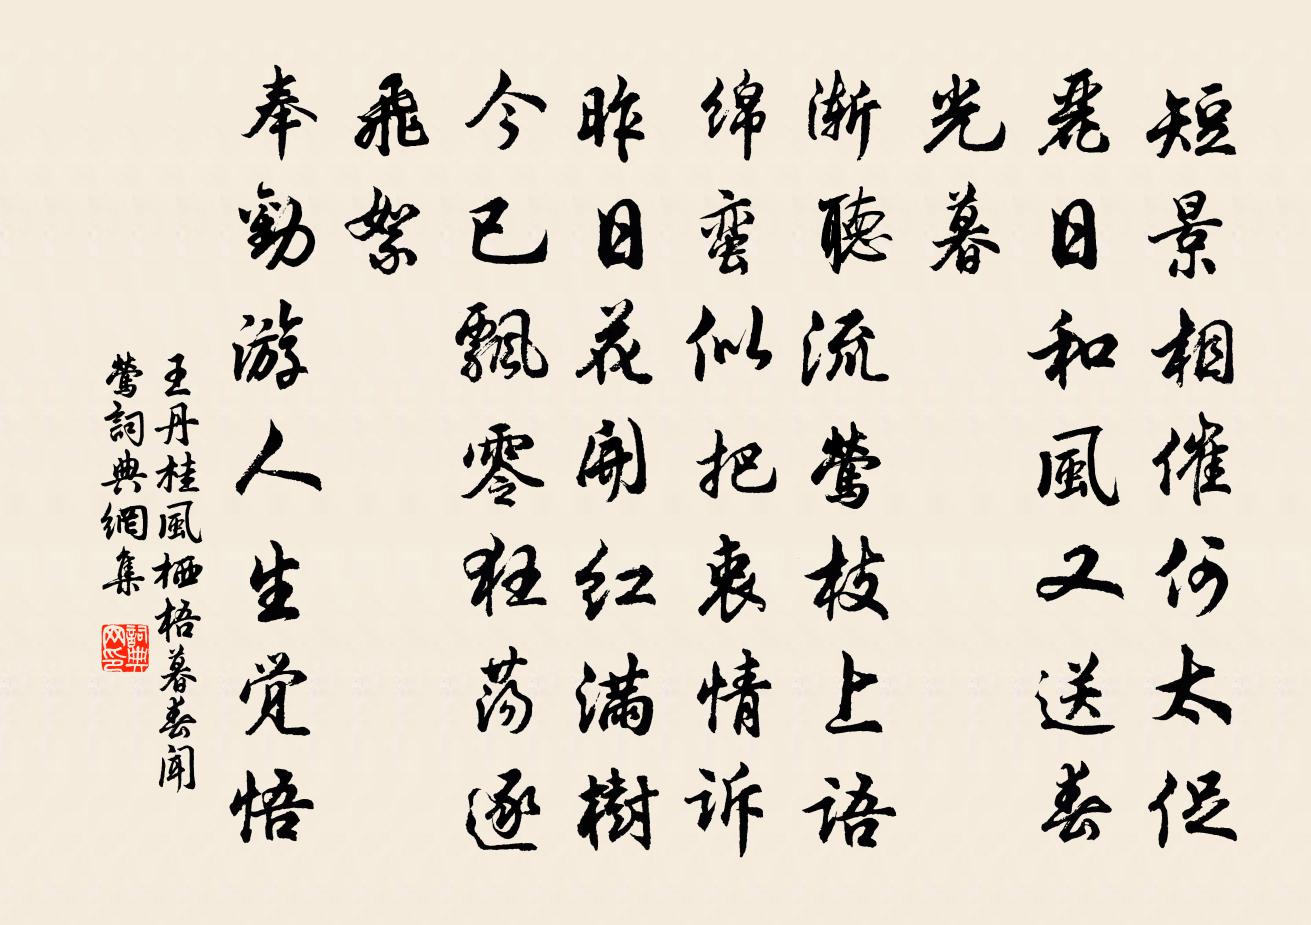 短景相催何太促
麗日和風又送春
光暮
渐聽流鶯枝上语
绵蛮似把衷情诉
昨日花開红满樹
今已飄零狂荡逐
飛絮
奉勸游人生觉悟
王丹桂風栖梧暮春闻
鶯詞典網集
詞典
网印